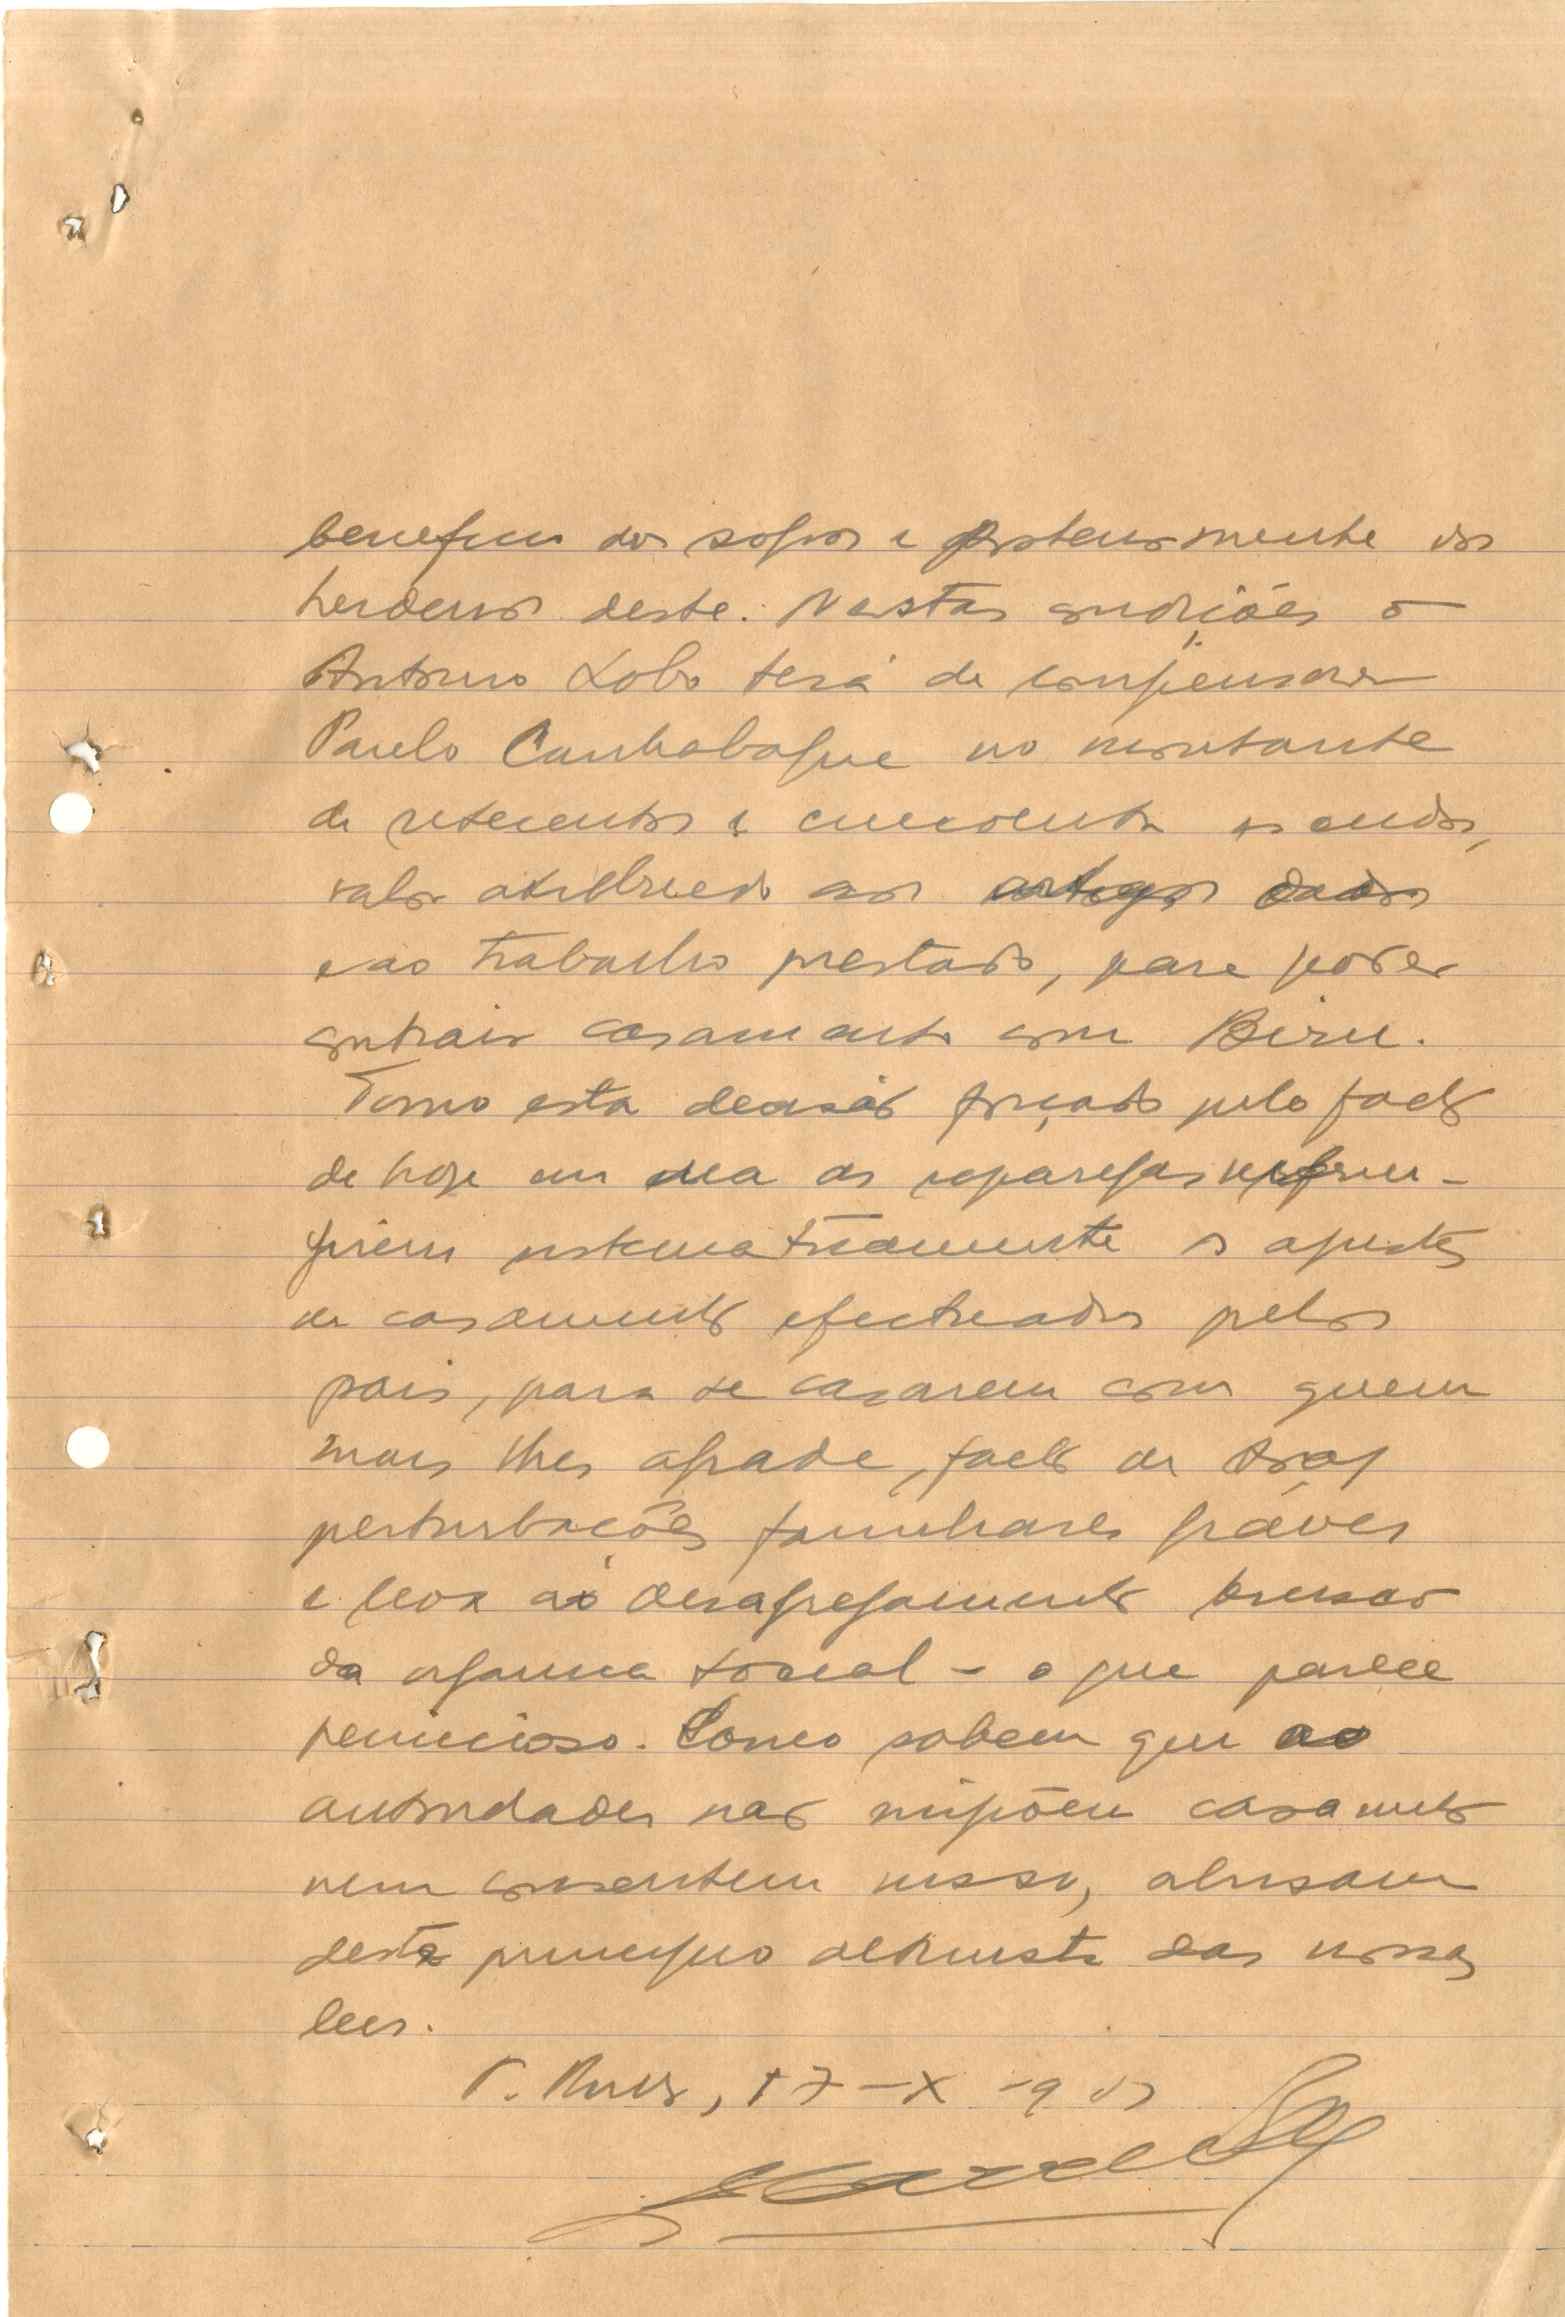 beneficio dos sogros e posteriormente dos
herdeiros deste. Nestas condições o
Antonio Lobo terá de compensar
Paulo Canhabaque no montante
de setecentos e cincoenta escudos,
valor atribuido aos artigos dados
e ao trabalho prestado, para poder
contrair casamento com Biru.
Tomo esta decisão forçado pelo facto
de hoje em dia as raparigas infrin-
girem sistematicamente os ajustes
de casamento efectuados pelos
pais, para se casarem com quem
mais lhes agrade, facto que traz
perturbações familiares graves
e leva ao desagregamento
da organica social - o que parece
pernicioso. Como sabem que as
autoridades não impõem casamento
nem consentem nisso, abusam
deste principio altruista das nossas
leis.
17-X-9